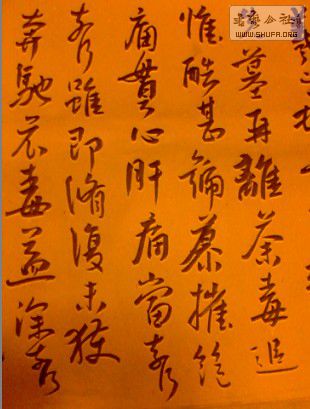 墓再離荼毒追
惟酷甚號慕摧絕
痛貫心肝痛當奈何
奈何雖即脩復未獲
奔馳哀毒益深奈何
書法公社
WWW.SHUFA.ORG